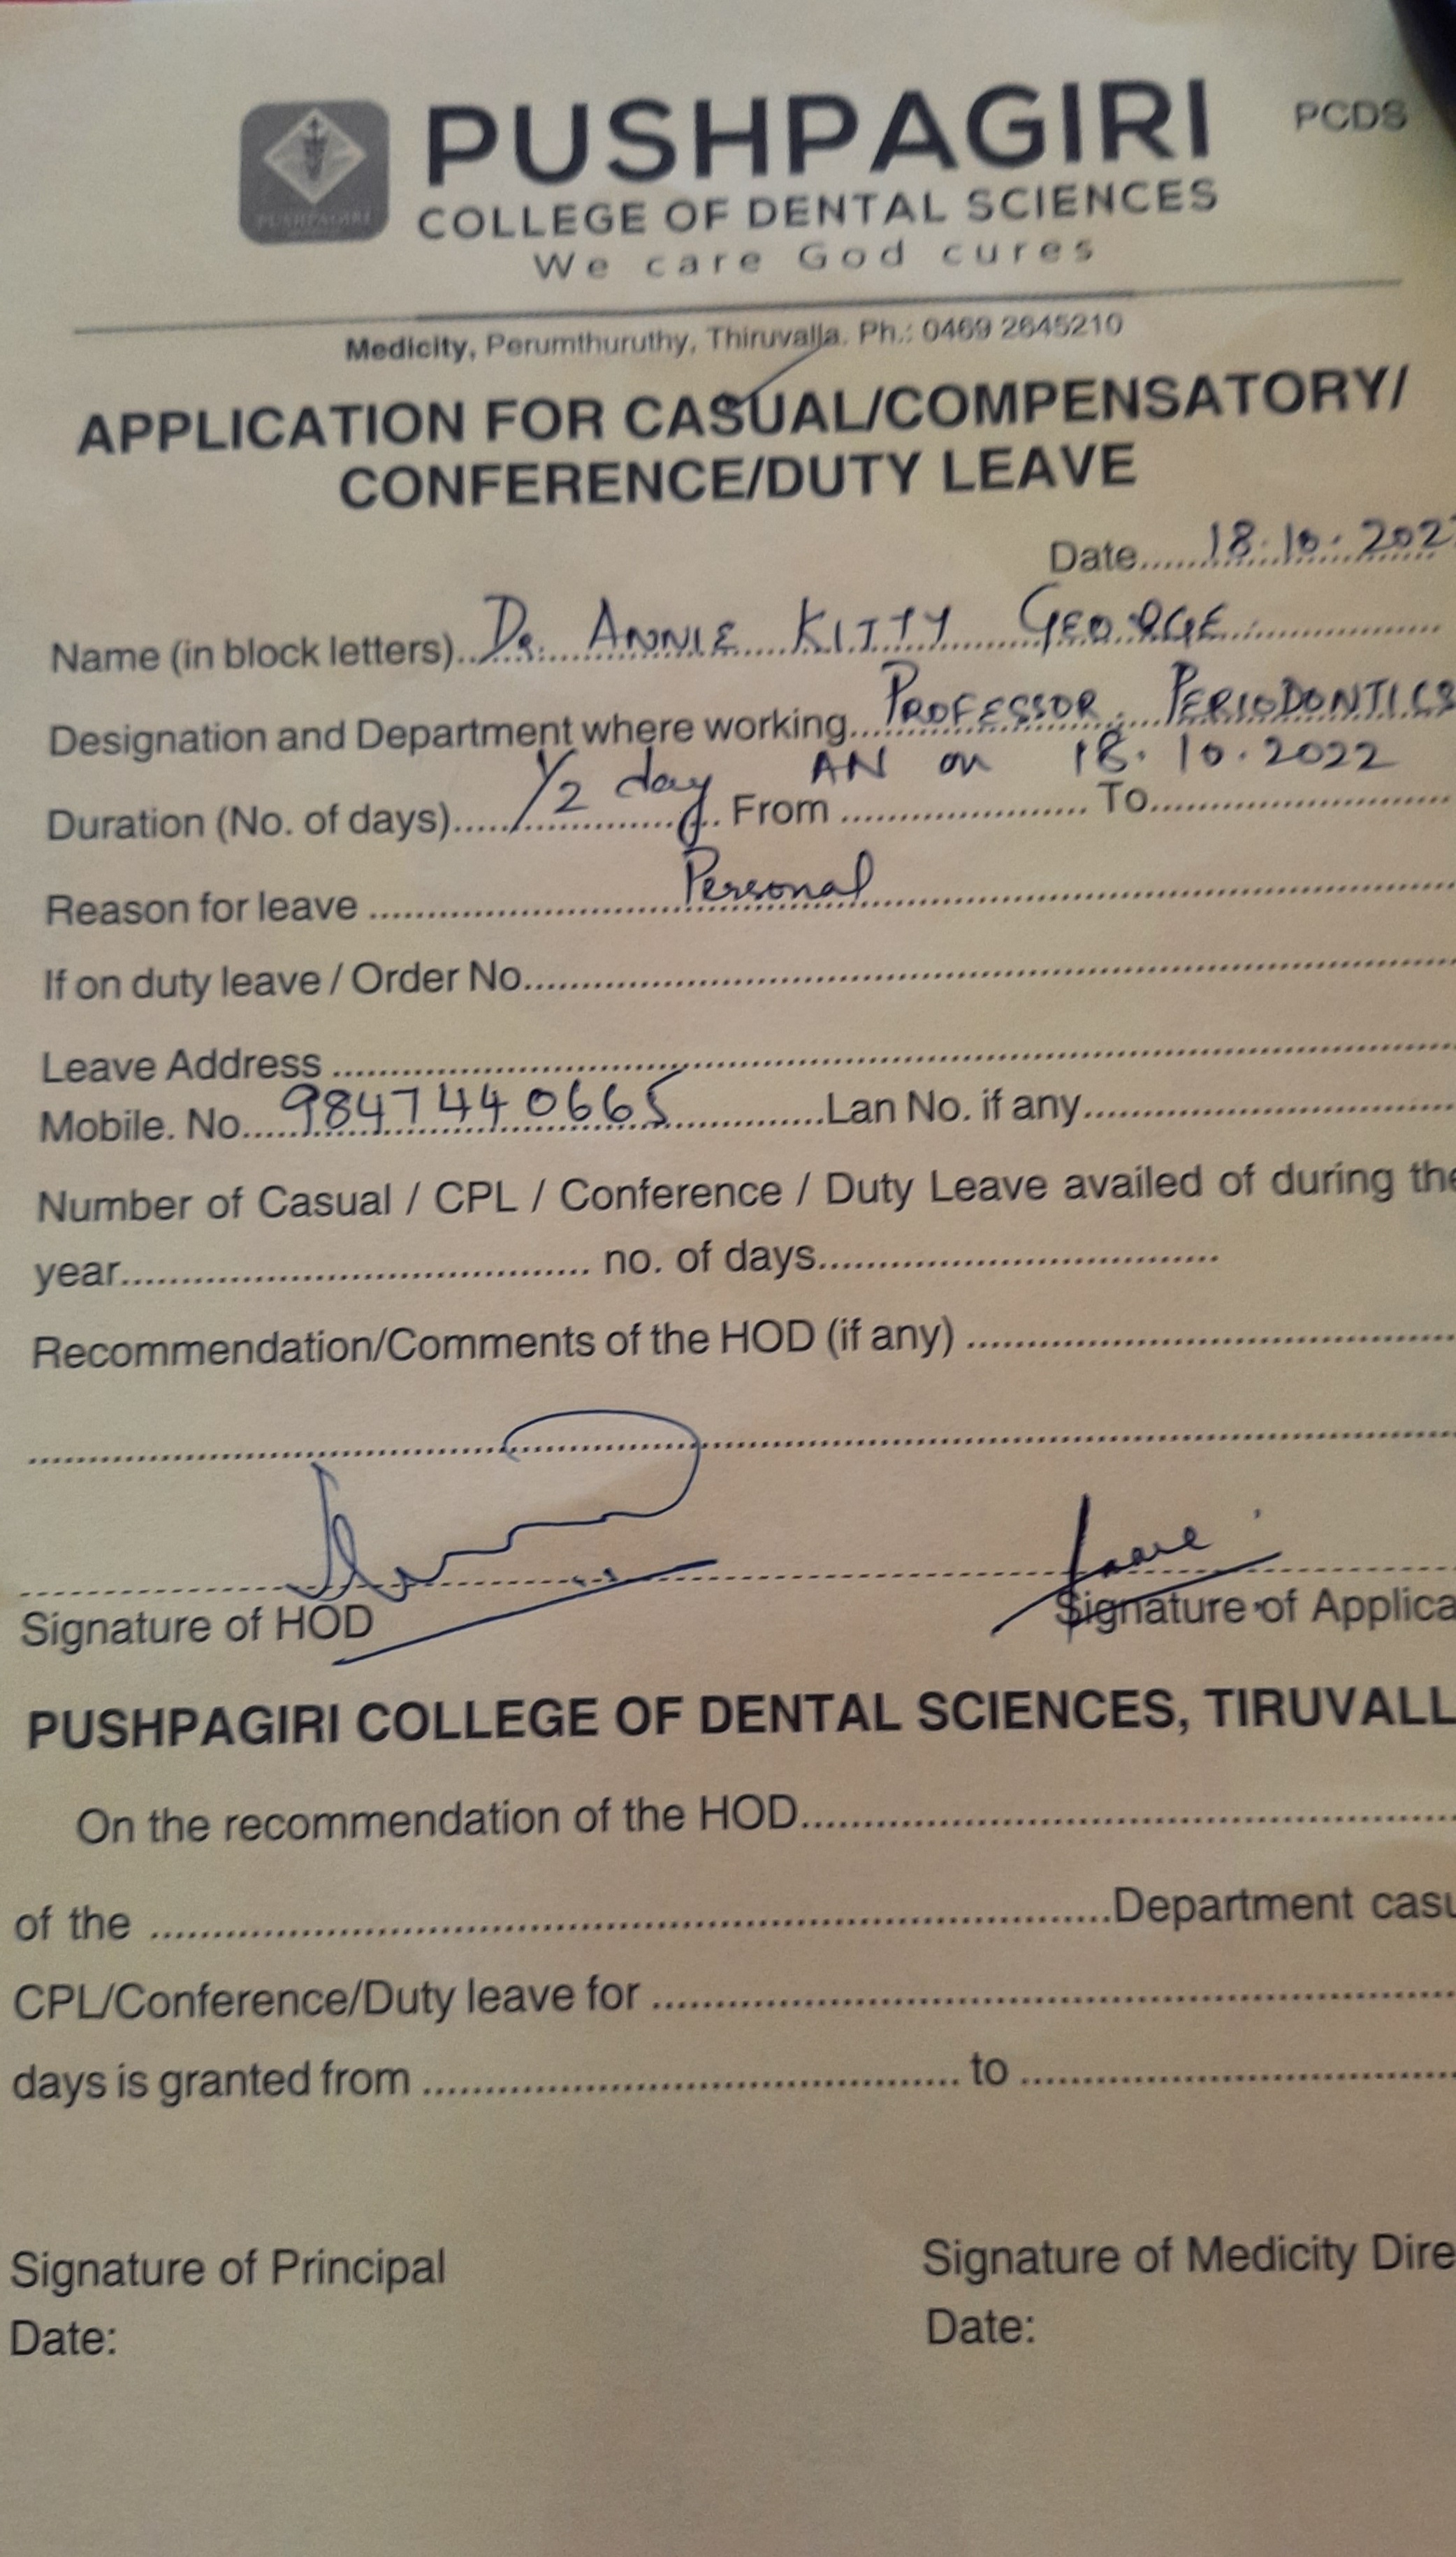 PUSHPAGIRI
PCDS
PUSHPAGIRI
COLLEGE OF DENTAL SCIENCES
We care God cures
Medicity, Perumthuruthy, Thiruvalla. Ph.: 0469 2645210
APPLICATION FOR CASUAL/COMPENSATORY/
CONFERENCE/DUTY LEAVE
Date.......18.10.202
Name (in block letters)..Dr. ANNIE KITTY GEORGE
Designation and Department where working...PROFESSOR, PERIODONTICS
Duration (No. of days).....1/2 day.. From AN on 18.10.2022 To
Reason for leave Personal
If on duty leave / Order No.
Leave Address
Mobile. No.....9847440665.....Lan No. if any
Number of Casual / CPL / Conference / Duty Leave availed of during the
year............ no. of days............
Recommendation/Comments of the HOD (if any)
Signature of HOD
Signature of Applica
PUSHPAGIRI COLLEGE OF DENTAL SCIENCES, TIRUVALL
On the recommendation of the HOD
of the ............Department casu
CPL/Conference/Duty leave for
days is granted from ............ to
Signature of Principal
Signature of Medicity Dire
Date:
Date: